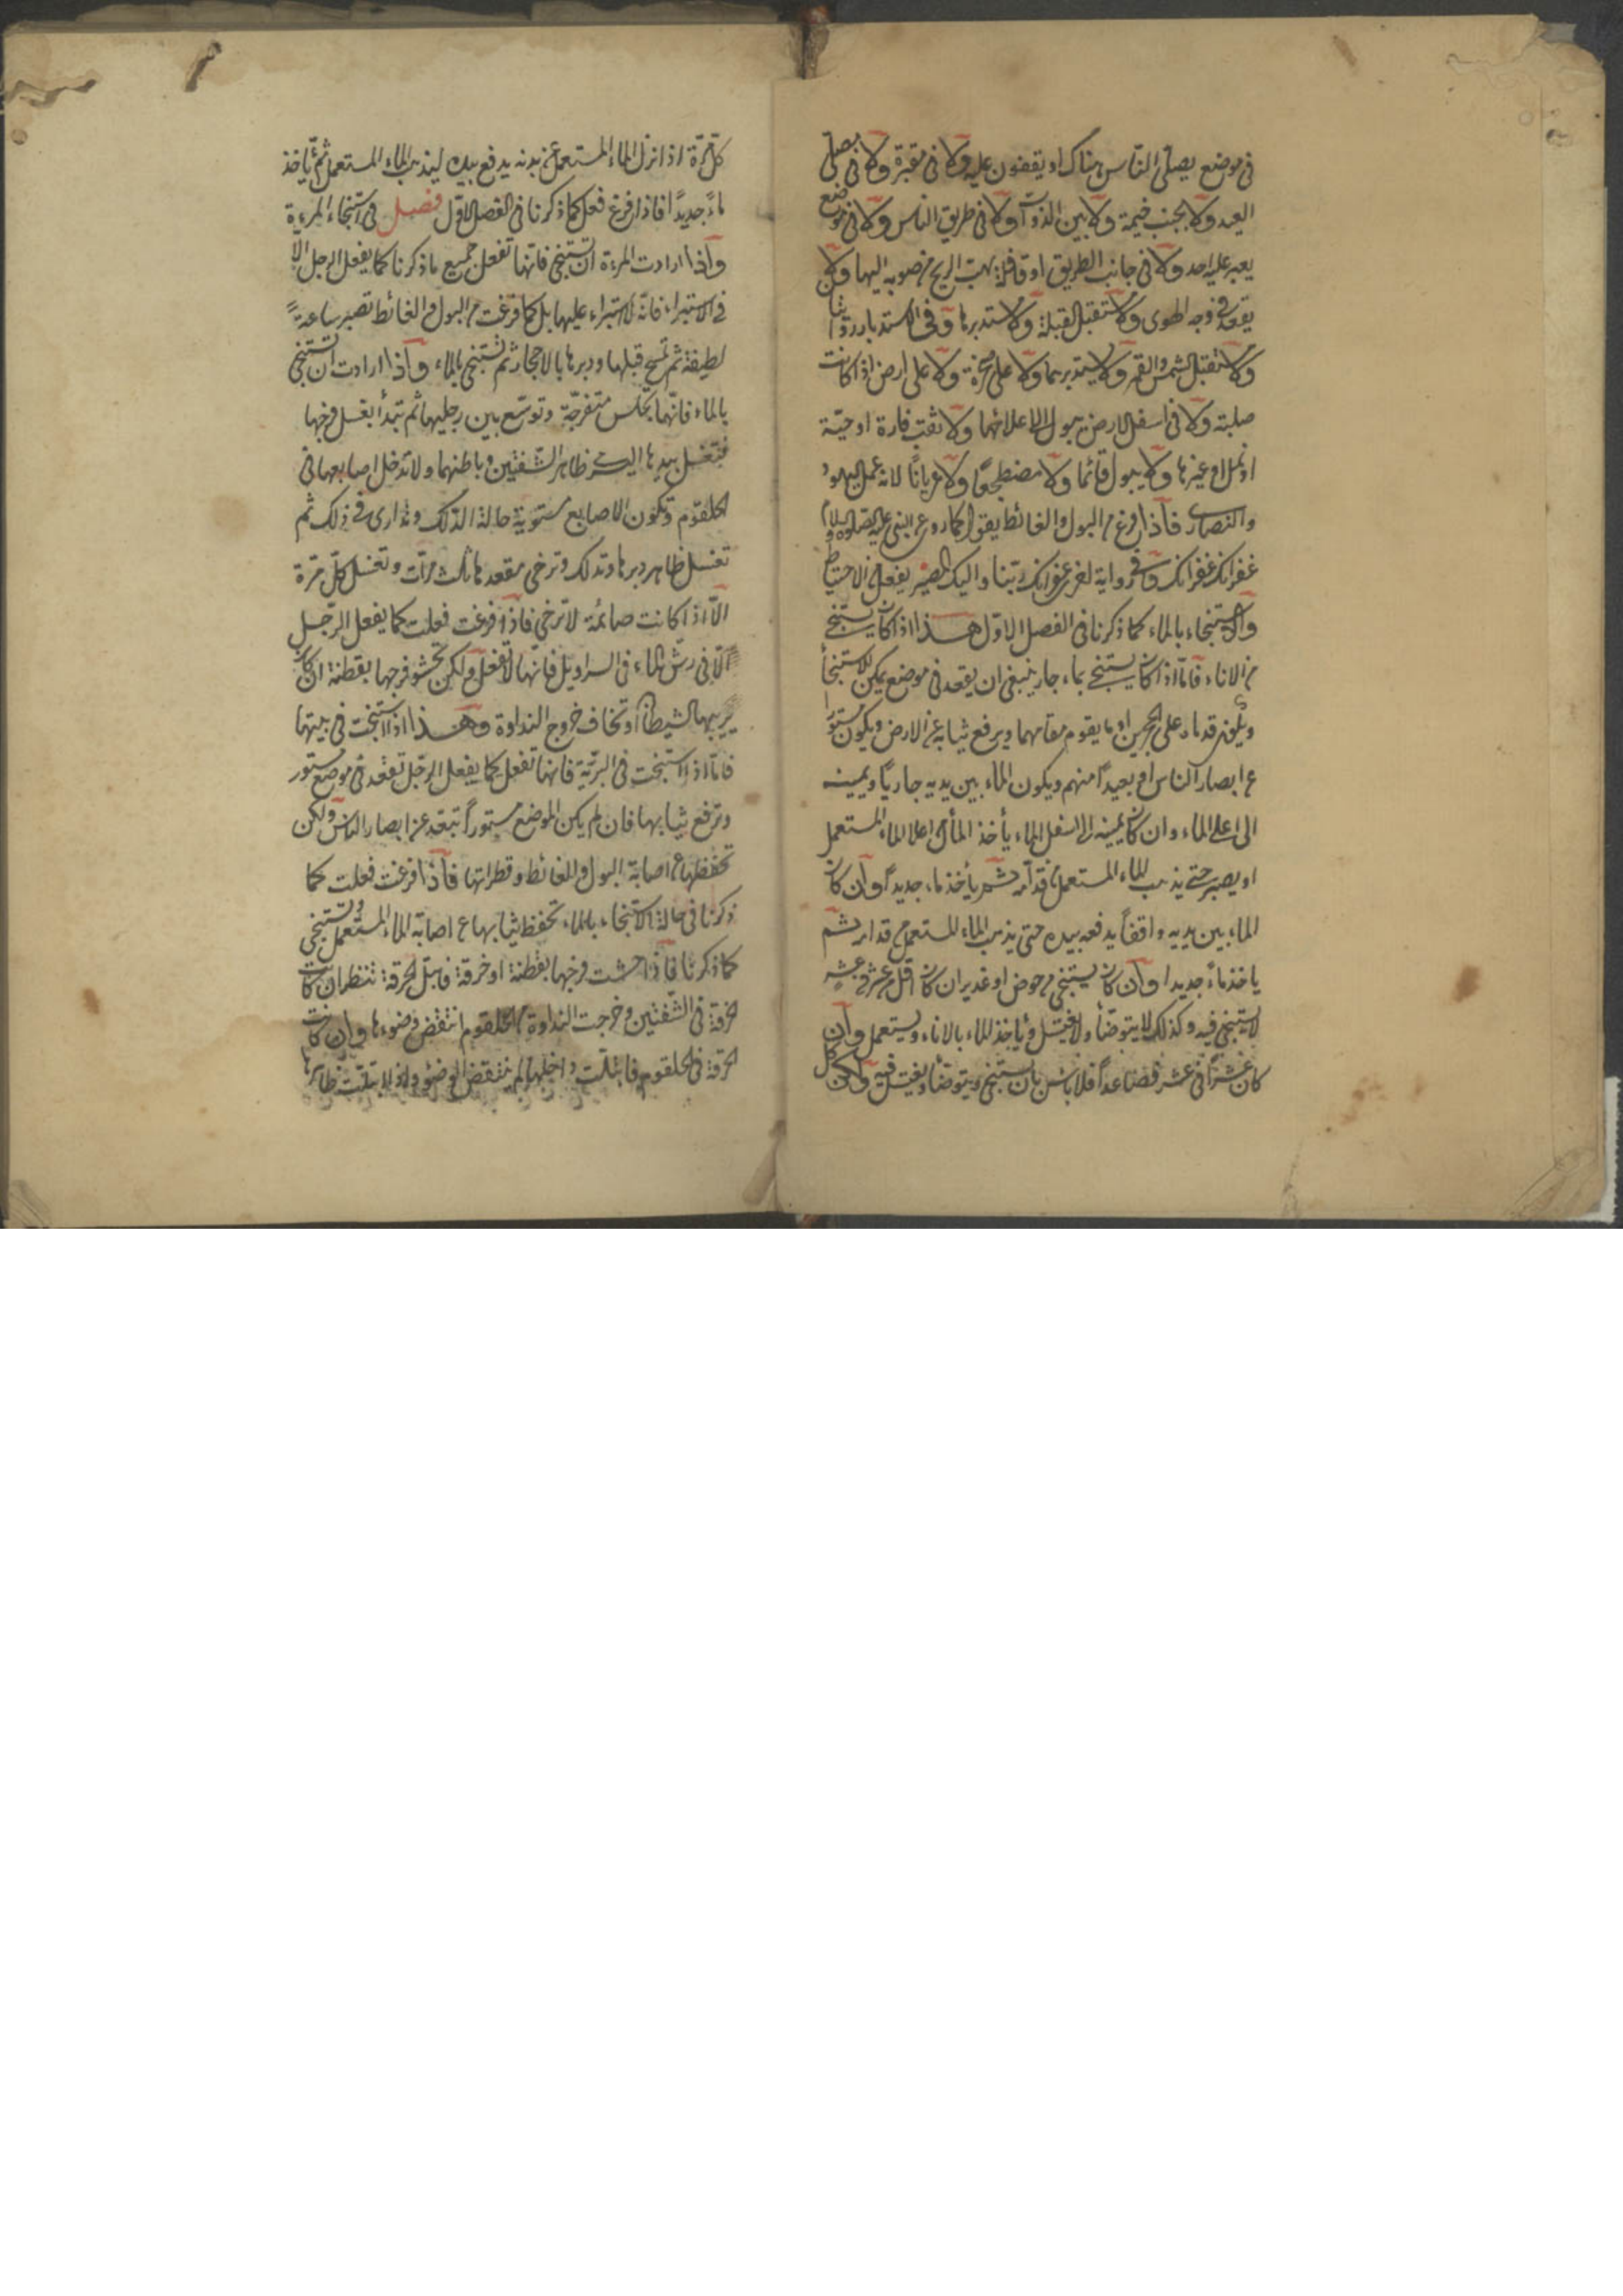 في موضع يصلي الناس هناك او يقفون عليه ولا في مقبرة ولا في مصلى
العيد ولا بجنب خيمة ولا بين الدواب ولا في طريق الناس ولا في موضع
يعبر عليه احد ولا في جانب الطريق او قافلة يهب الريح من صوبه اليها ولا
يقعد في وجه الهوى ولا يستقبل القبلة ولا يستدبرها وفي الاستدبار روايتان
ولا يستقبل الشمس والقمر ولا يستدبرهما ولا على صخرة ولا على ارض اذا كانت
صلبته ولا في اسفل الارض يبول الى اعلائها ولا ثقب فارة او حية
او نمل او غيرها ولا يبول قائما ولا مضطجعا ولا عريانا لانه عمل اليهود
والنصارى فاذا فرغ من البول والغائط يقول كما روي عن النبي عليه الصلوة والسلام
غفرانك غفرانك وفي رواية اخرى غفرانك ربنا واليك المصير يفعل في الاحتياط
والاستنجاء بالماء كما ذكرنا في الفصل الاول هذا اذا كان يستنجي
من الاناء فاما اذا كان يستنجي بماء جار ينبغي ان يقعد في موضع يمكن للاستنجاء
ويكون قدماه على الحجرين او ما يقوم مقامهما ويرفع ثيابه عن الارض ويكون مستورا
عن ابصار الناس او بعيدا منهم ويكون الماء بين يديه جاريا ويمينه
الى اعلى الماء وان كان يمينه الى اسفل الماء يأخذ الماء من اعلى الماء المستعمل
او يصبر حتى يذهب الماء المستعمل قدامه ثم يأخذ ماء جديدا وان كان
الماء بين يديه واقفا يدفعه بيده حتى يذهب الماء المستعمل من قدامه ثم
ياخذ ماء جديدا وان كان يستنجي من حوض او غدير ان كان اقل من عشر في عشر
لا يستنجي فيه وكذلك لا يتوضأ ولا يغتسل ويأخذ الماء بالاناء ويستعمل وان
كان عشرا في عشر فصاعدا فلا باس بان يستنجي ويتوضأ ويغتسل فيه ولكن كل
كل مرة اذا نزل الماء المستعمل عن بدنه يدفع بيده ليذهب الماء المستعمل ثم ياخذ
ماء جديدا فاذا فرغ فعل كما ذكرنا في الفصل الاول فصل في استنجاء المرءة
واذا ارادت المرءة ان تستنجي فانها تفعل جميع ما ذكرنا كما يفعل الرجل الا
في الاستبراء فانه لا استبراء عليها بل كما فرغت من البول والغائط تصبر ساعة
لطيفة ثم تمسح قبلها ودبرها بالاحجار ثم تستنجي بالماء واذا ارادت ان تستنجي
بالماء فانها تجلس متفرجة وتوسع بين رجليها ثم تبتدأ بغسل فرجها
فتغسل بيدها اليسرى ظاهر الشفتين وباطنهما ولا تدخل اصابعها في
الحلقوم وتكون الاصابع مستوية حالة الدلك وتدارى في ذلك ثم
تغسل ظاهر دبرها وتدلك وترخي مقعدها ثلث مرات وتغسل كل مرة
الا اذا كانت صائمة لا ترخي فاذا فرغت فعلت كما يفعل الرجل
الا في رش الماء في السراويل فانها لا تفعل ولكن تحشو فرجها بقطنة ان كان
يريبها الشيطان او تخاف خروج النداوة وهذا اذا استنجت في بيتها
فاما اذا استنجت في البرية فانها تفعل كما يفعل الرجل تقعد في موضع مستور
وترفع ثيابها فان لم يكن الموضع مستورا تبعد عن ابصار الناس ولكن
تحفظها من اصابة البول والغائط وقطراتها فاذا فرغت فعلت كما
ذكرنا في حالة الاستنجاء بالماء تحفظ ثيابها عن اصابة الماء المستعمل وتستنجي
كما ذكرنا فاذا حشت فرجها بقطنة او خرقة فابتل الخرقة تنظر ان كانت
الخرقة في الشفتين وخرجت النداوة من الحلقوم انتقض وضوءها وان كانت
الخرقة في الحلقوم فابتلت داخلها لم ينتقض الوضوء واذا ابتلت ظاهرها